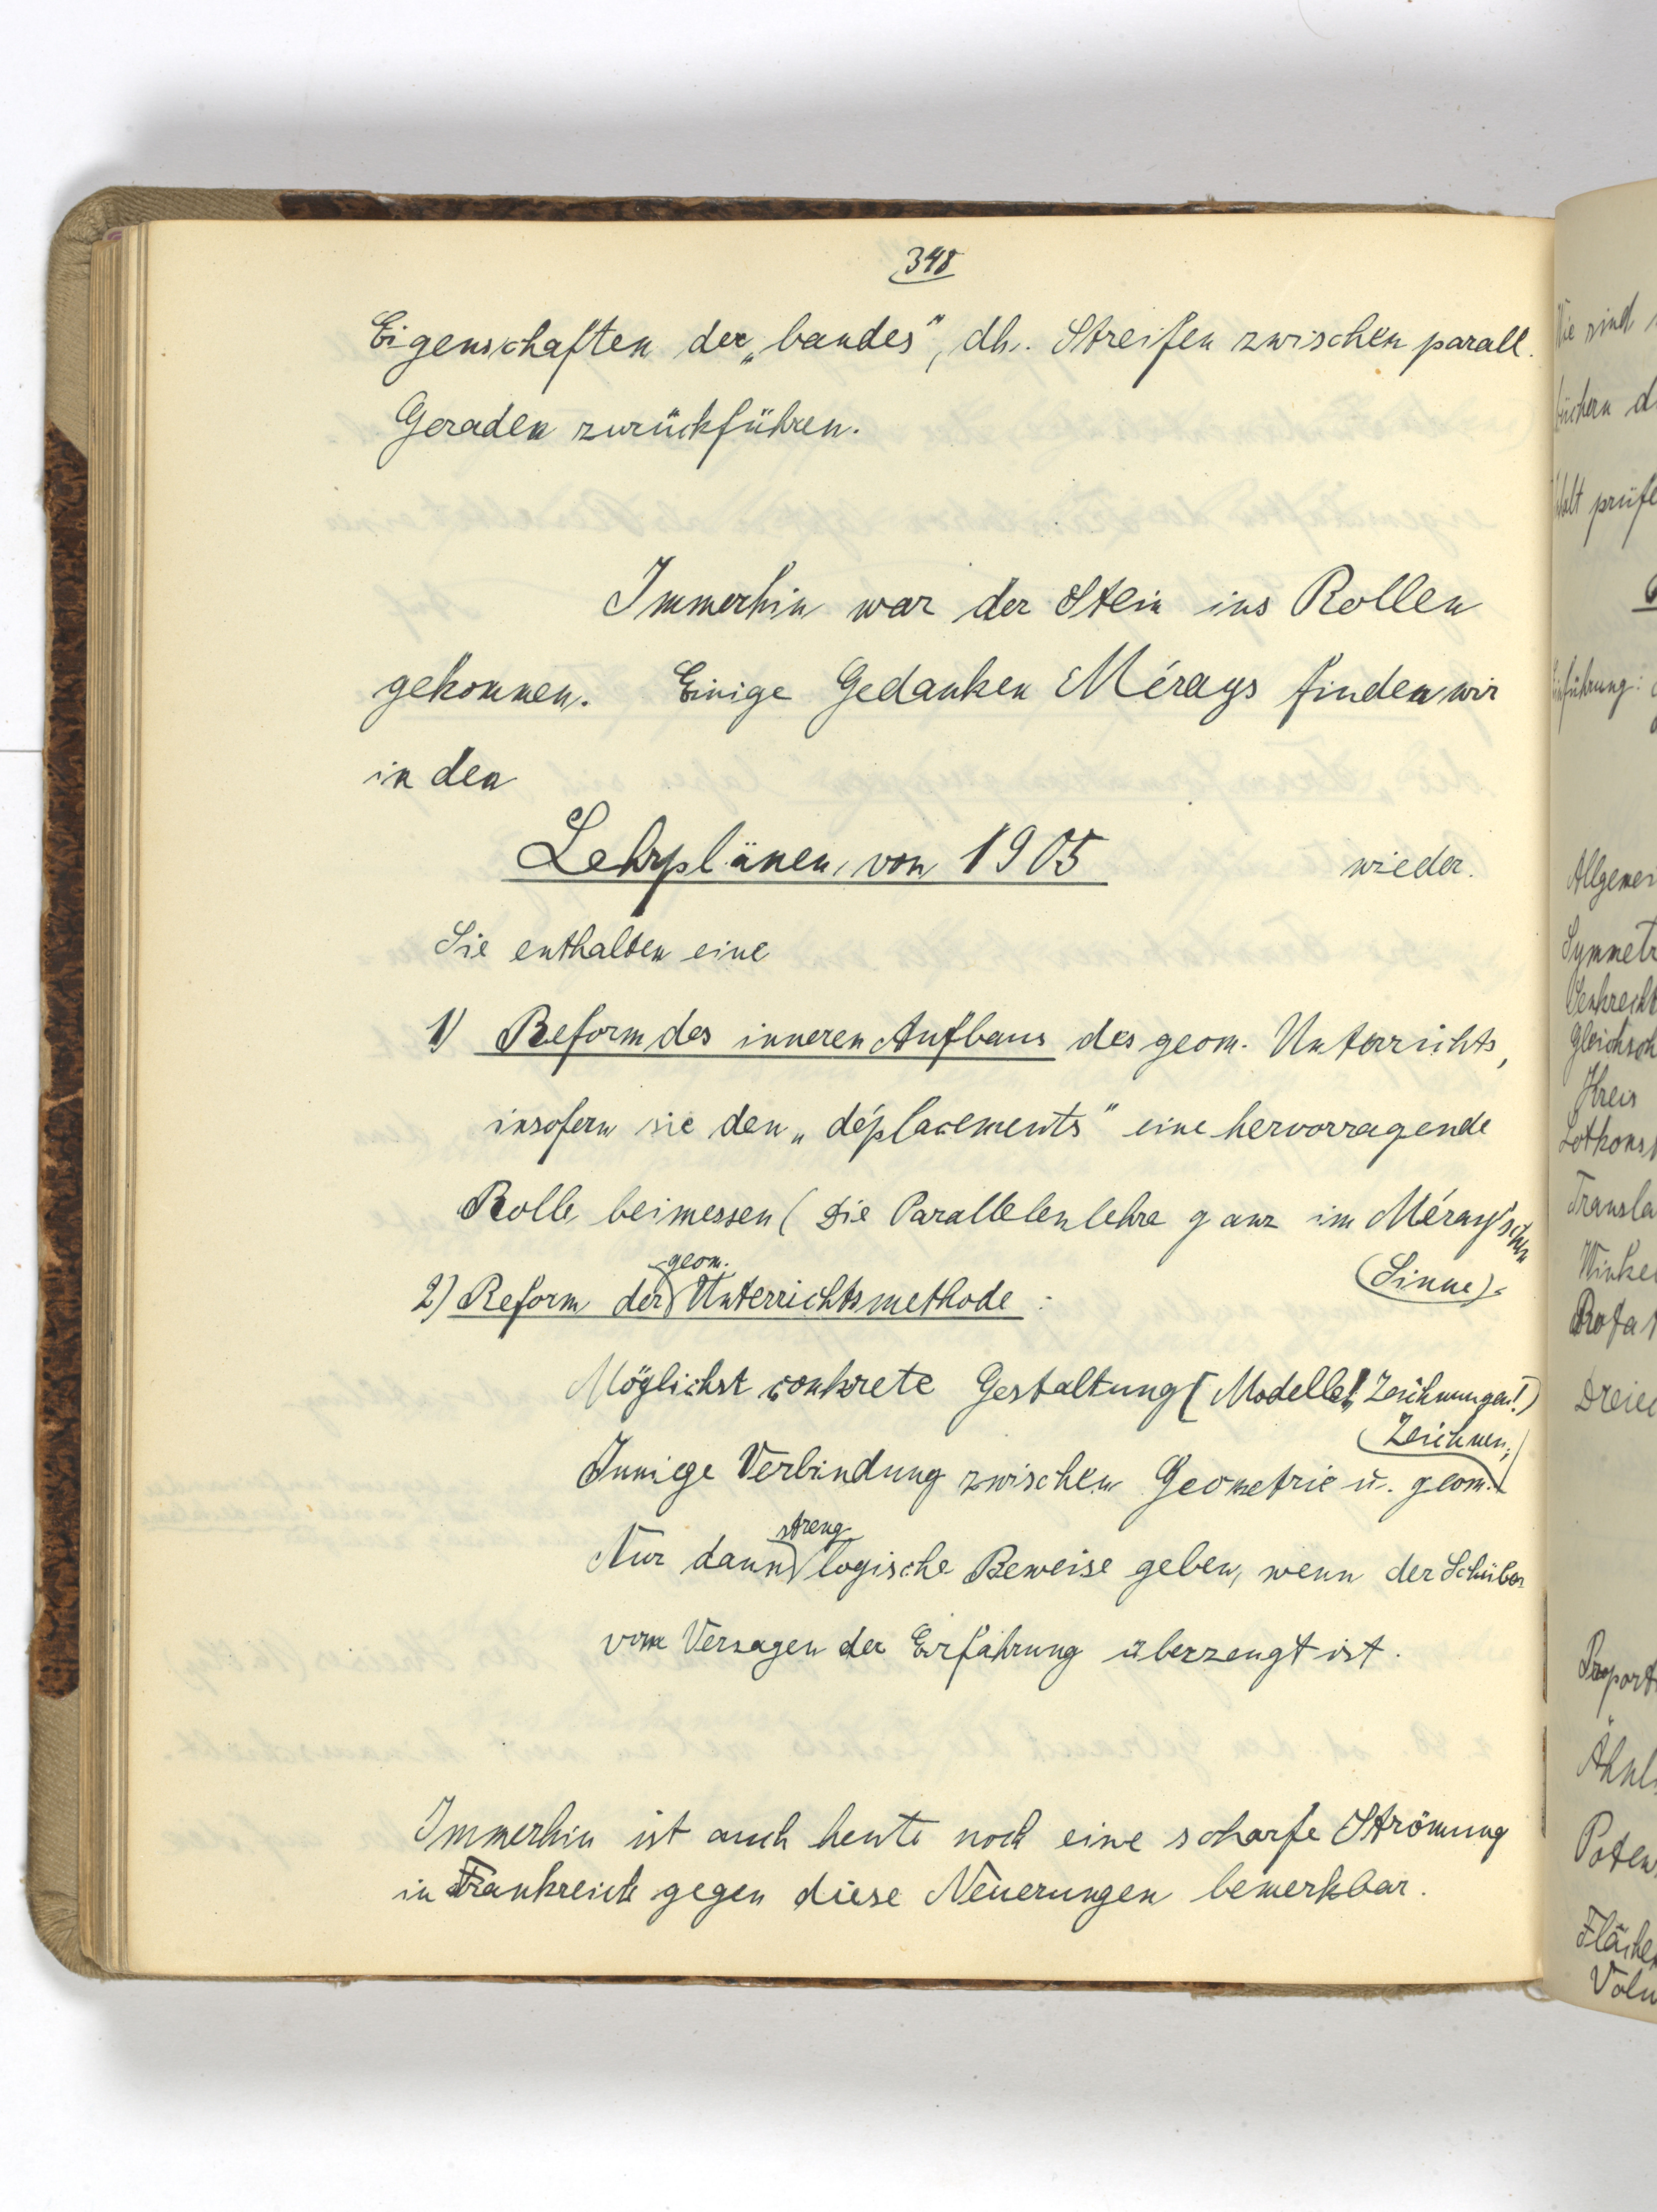 348
Eigenschaften der „bandes", dh. Streifen zwischen parall.
Geraden zurückführen.
Immerhin war der Stein ins Rollen
gekommen. Einige Gedanken Mérays finden wir
in den
Lehrplänen von 1905 wieder.
Sie enthalten eine
1) Reform des inneren Aufbaus des geom. Unterrichts,
insofern sie den „déplacements" eine hervorragende
Rolle beimessen (Die Parallelenlehre ganz im Méray'schen
Sinne).
2) Reform der geom. Unterrichtsmethode:
Möglichst conkrete Gestaltung (Modelle!, Zeichnungen!)
Innige Verbindung zwischen Geometrie u. geom. Zeichnen;
Nur dann streng logische Beweise geben, wenn der Schüler
vom Versagen der Erfahrung überzeugt ist.
Immerhin ist auch heute noch eine scharfe Strömung
in Frankreich gegen diese Neuerungen bemerkbar.
Sie sind
büchern
prüfe
Einführung:
Allgemei
Symmetr
Senkrecht
Gleichsch
Kreis
Lotkonst
Transla
Winke
Rotat
Dreiec
Proport
Ähnl
Poten
Fläche
Volu